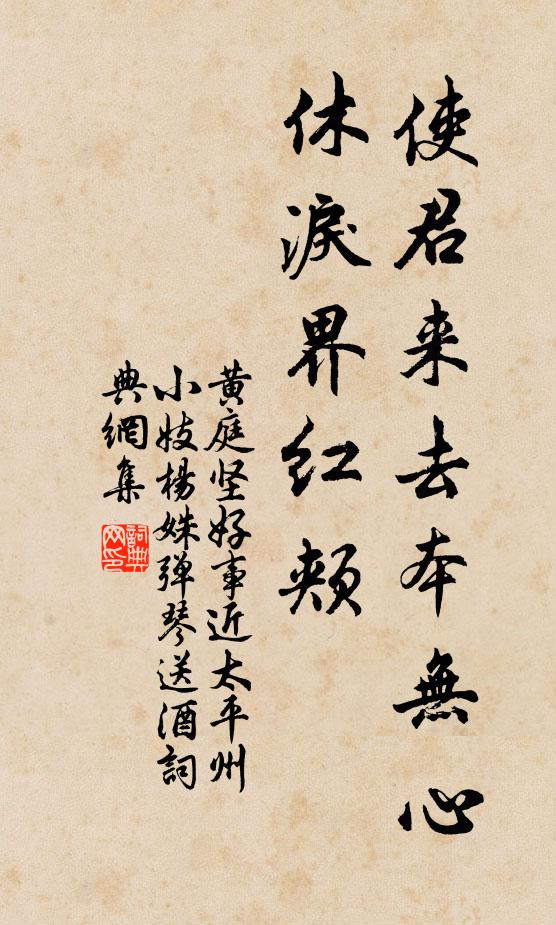 使君来去本無心
休淚界红頰
黄庭坚好事近太平州
小妓楊姝弹琴送酒詞
典網集
詞典网印